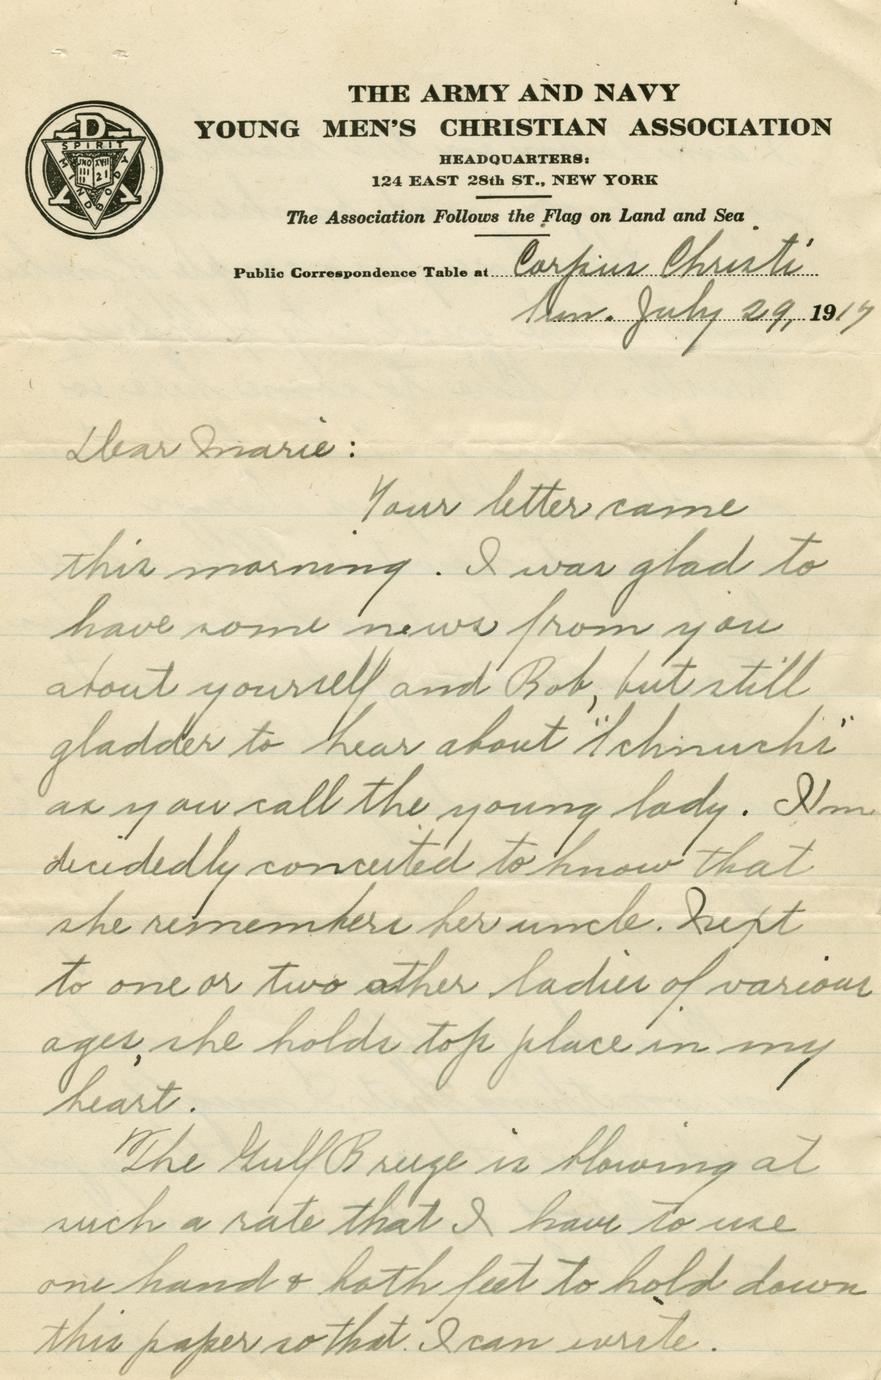 THE ARMY AND NAVY
YOUNG MEN'S CHRISTIAN ASSOCIATION
HEADQUARTERS:
124 EAST 28th ST., NEW YORK
The Association Follows the Flag on Land and Sea
Public Correspondence Table at Corpus Christi
Sun. July 29, 1917
SPIRIT
Dear Marie:
Your letter came
this morning. I was glad to
have some news from you
about yourself and Bob, but still
gladder to hear about "Schnucki"
as you call the young lady. I'm
decidedly conceited to know that
she remembers her uncle. Next
to one or two other ladies of various
ages, she holds top place in my
heart.
The Gulf Breeze is blowing at
such a rate that I have to use
one hand & both feet to hold down
this paper so that I can write.